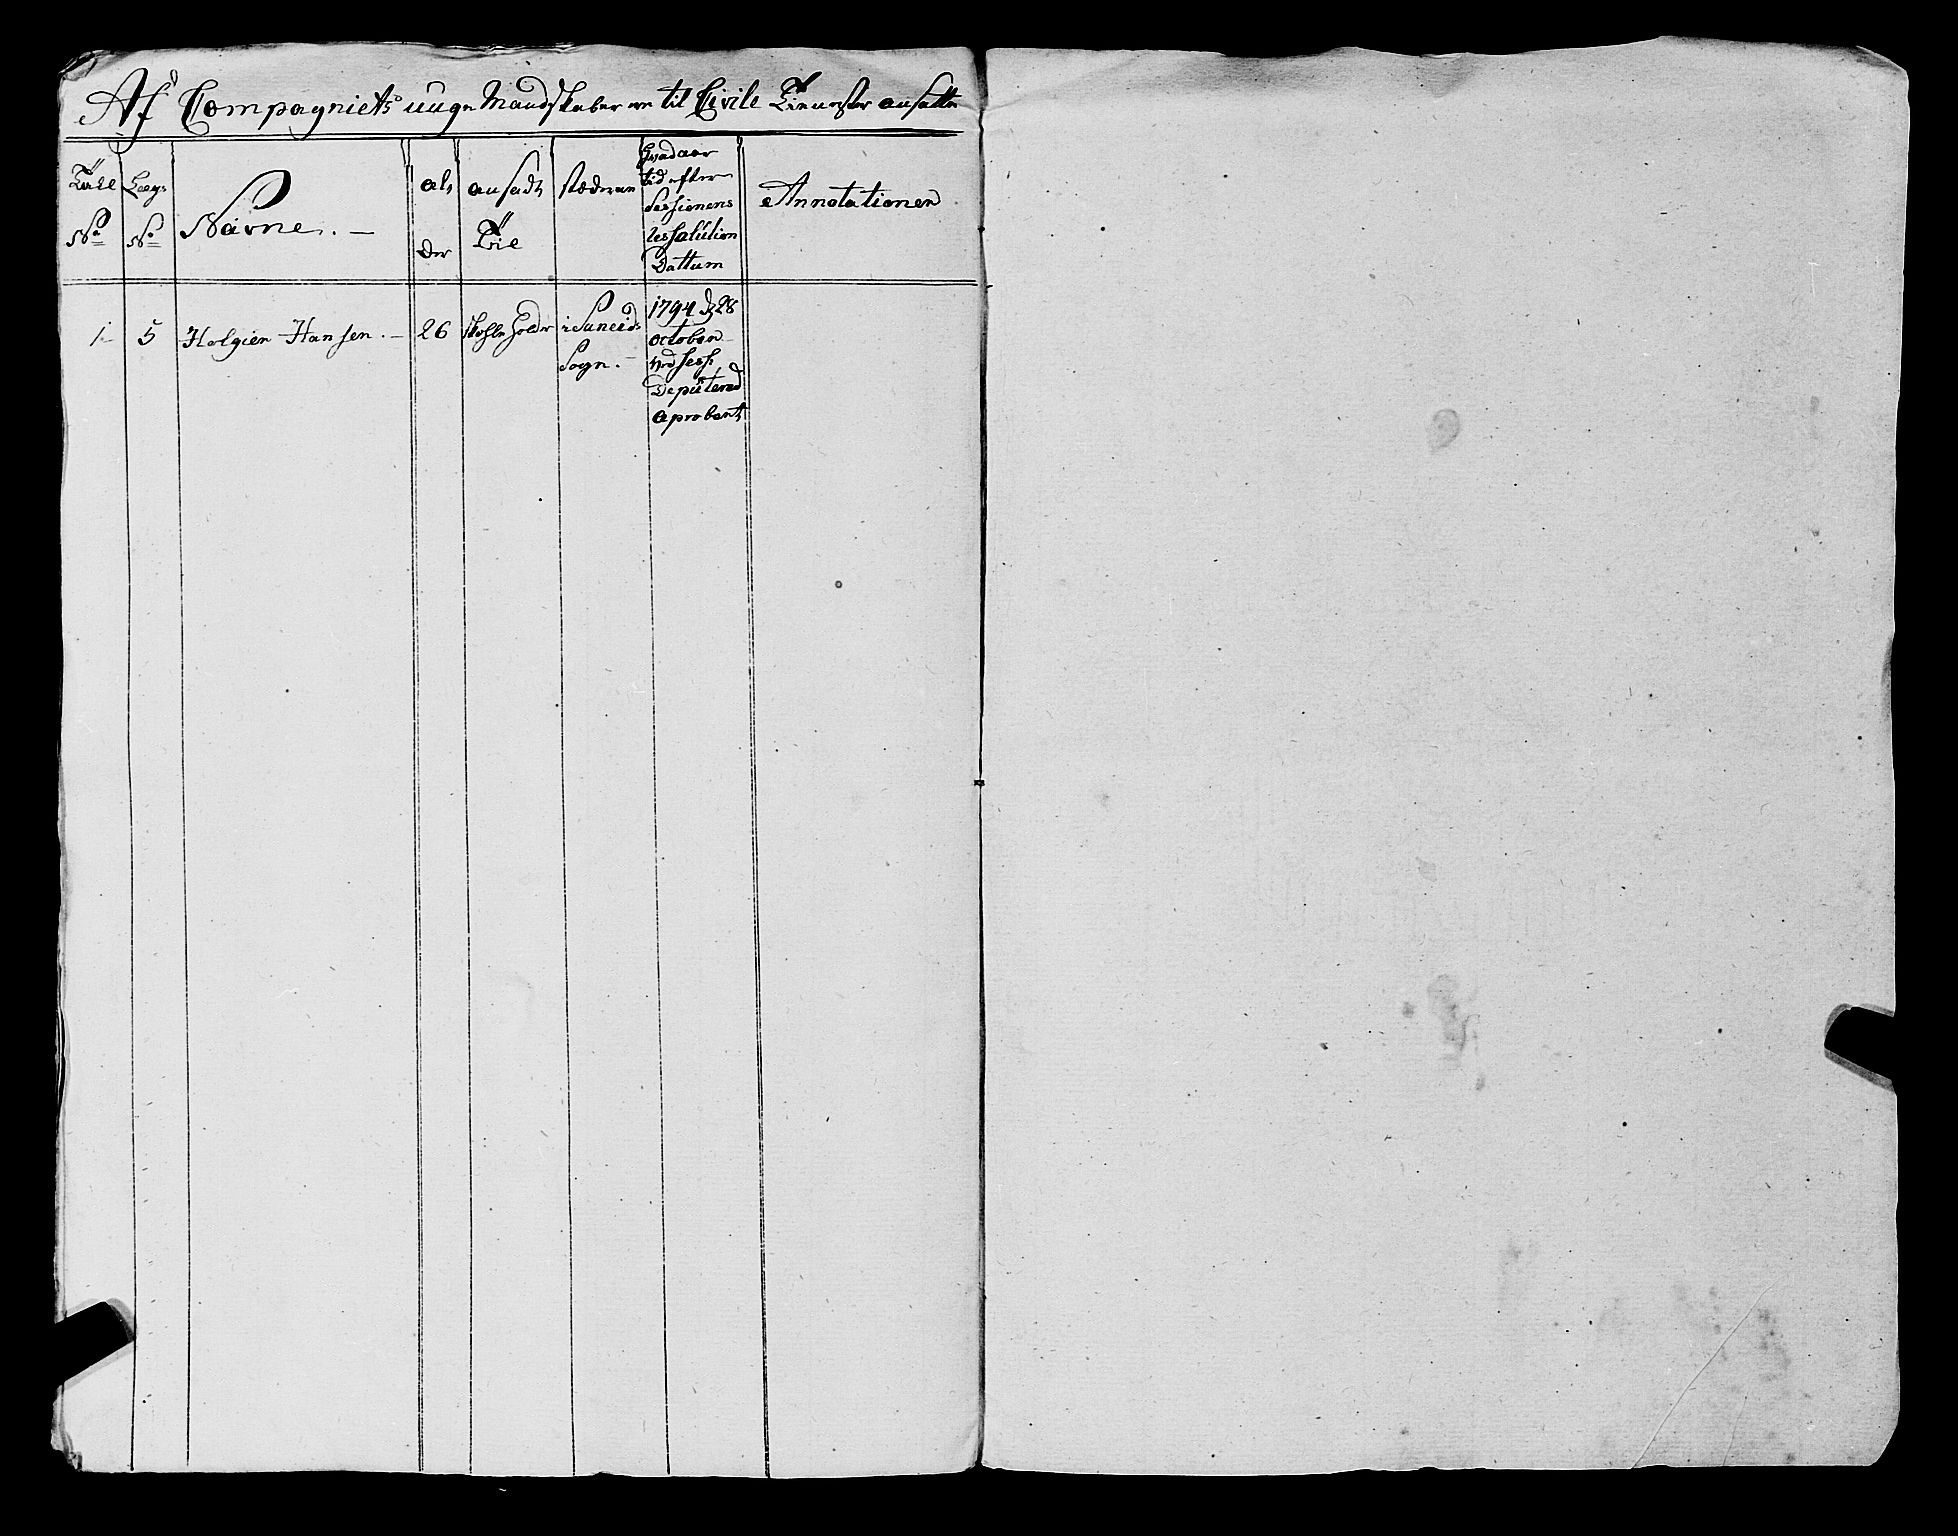 Af Compagniets unge Mandskaber ere til Civile Tienester ansatte
Talle No
Lægs No
Navne. —
alder
ansadt Til
stæderne
Hvad aar
tid efter
Sessionens
ressolution
Dattum
Annotationer
1 5 Holgien Hansen. — 26 skohle holder i Sogn. 1794 d 28
october
ved sess:
Deputered
aprobert